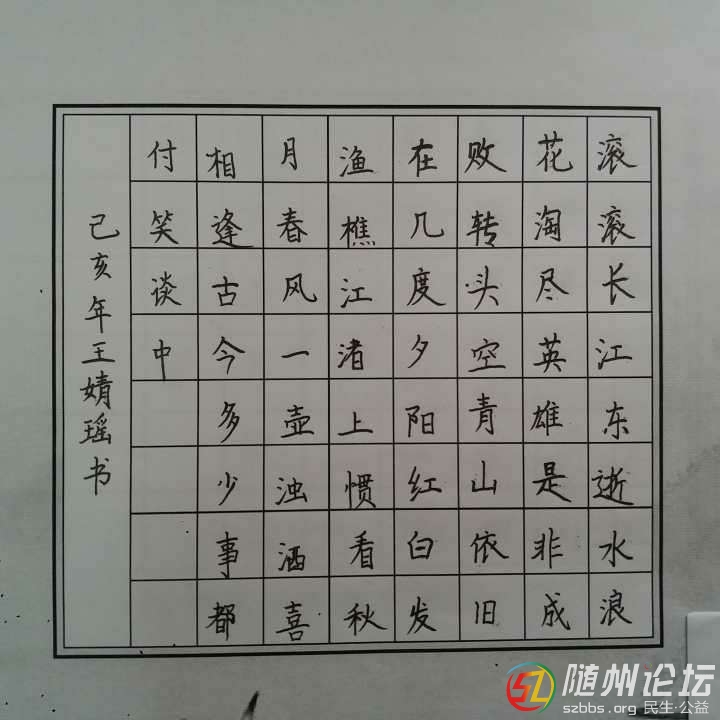 滚滚长江东逝水浪
花淘尽英雄是非成
败转头空青山依旧
在几度夕阳红白发
渔樵江渚上惯看秋
月春风一壶浊酒喜
相逢古今多少事都
付笑谈中
己亥年王婧瑶书
随州论坛
szbbs.org 民生·公益